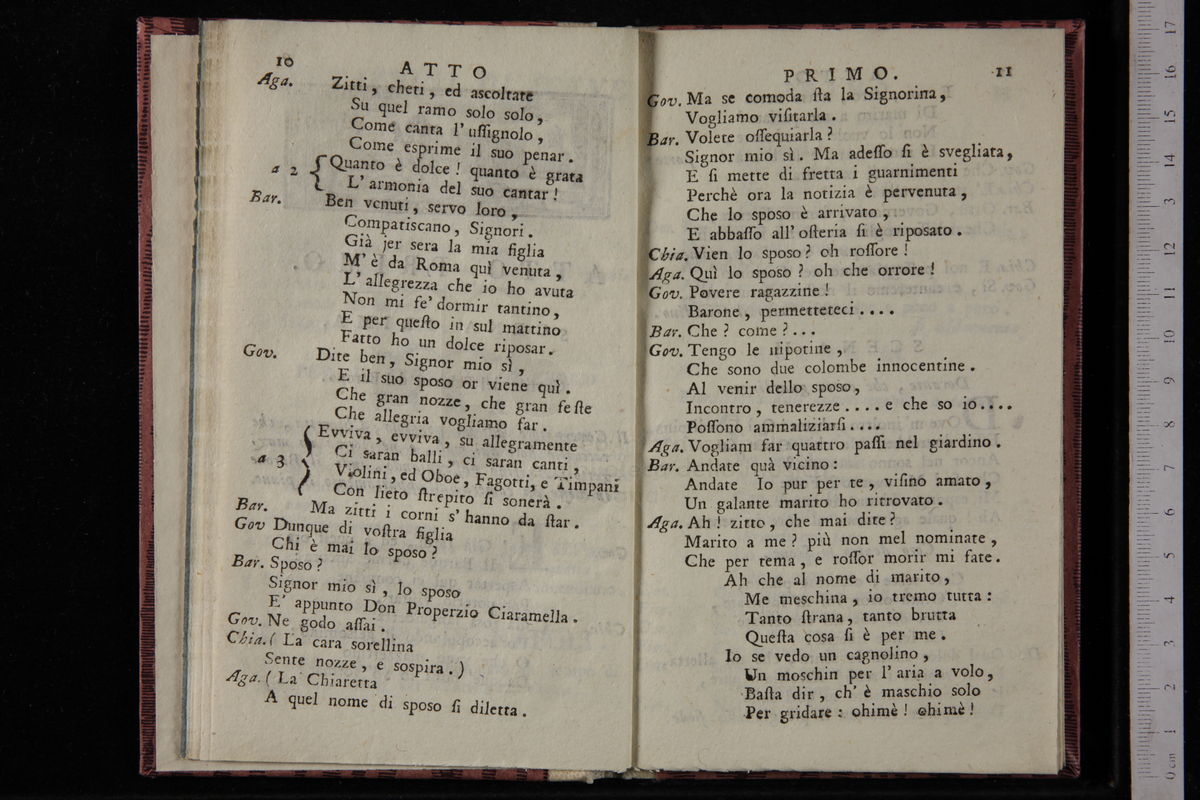 10
ATTO
Aga. Zitti, cheti, ed ascoltate
Su quel ramo solo solo,
Come canta l'uſſignolo,
Come esprime il suo penar.
a 2 { Quanto è dolce! quanto è grata
L'armonia del suo cantar!
Bar. Ben venuti, servo loro,
Compatiscano, Signori.
Già jer sera la mia figlia
M'è da Roma quì venuta,
L'allegrezza che io ho avuta
Non mi fe' dormir tantino,
E per queſto in sul mattino
Fatto ho un dolce riposar.
Gov. Dite ben, Signor mio sì,
E il suo sposo or viene quì.
Che gran nozze, che gran feſte
Che allegria vogliamo far.
a 3 { Evviva, evviva, su allegramente
Ci saran balli, ci saran canti,
Violini, ed Oboe, Fagotti, e Timpani
Con lieto ſtrepito ſi sonerà.
Bar. Ma zitti i corni s'hanno da ſtar.
Gov Dunque di voſtra figlia
Chi è mai lo sposo?
Bar. Sposo?
Signor mio sì, lo sposo
E' appunto Don Properzio Ciaramella.
Gov. Ne godo aſſai.
Chia. ( La cara sorellina
Sente nozze, e sospira.)
Aga. ( La Chiaretta
A quel nome di sposo ſi diletta.
PRIMO.
11
Gov. Ma se comoda ſta la Signorina,
Vogliamo viſitarla.
Bar. Volete oſſequiarla?
Signor mio sì. Ma adeſſo ſi è svegliata,
E ſi mette di fretta i guarnimenti
Perchè ora la notizia è pervenuta,
Che lo sposo è arrivato,
E abbaſſo all'oſteria ſi è riposato.
Chia. Vien lo sposo? oh roſſore!
Aga. Quì lo sposo? oh che orrore!
Gov. Povere ragazzine!
Barone, permetteteci....
Bar. Che? come?...
Gov. Tengo le nipotine,
Che sono due colombe innocentine.
Al venir dello sposo,
Incontro, tenerezze.... e che so io....
Poſſono ammaliziarſi....
Aga. Vogliam far quattro paſſi nel giardino.
Bar. Andate quà vicino:
Andate Io pur per te, viſino amato,
Un galante marito ho ritrovato.
Aga. Ah! zitto, che mai dite?
Marito a me? più non mel nominate,
Che per tema, e roſſor morir mi fate.
Ah che al nome di marito,
Me meschina, io tremo tutta:
Tanto ſtrana, tanto brutta
Queſta cosa ſi è per me.
Io se vedo un cagnolino,
Un moschin per l'aria a volo,
Baſta dir, ch'è maschio solo
Per gridare: ohimè! ohimè!
0 cm 1 2 3 4 5 6 7 8 9 10 11 12 13 14 15 16 17